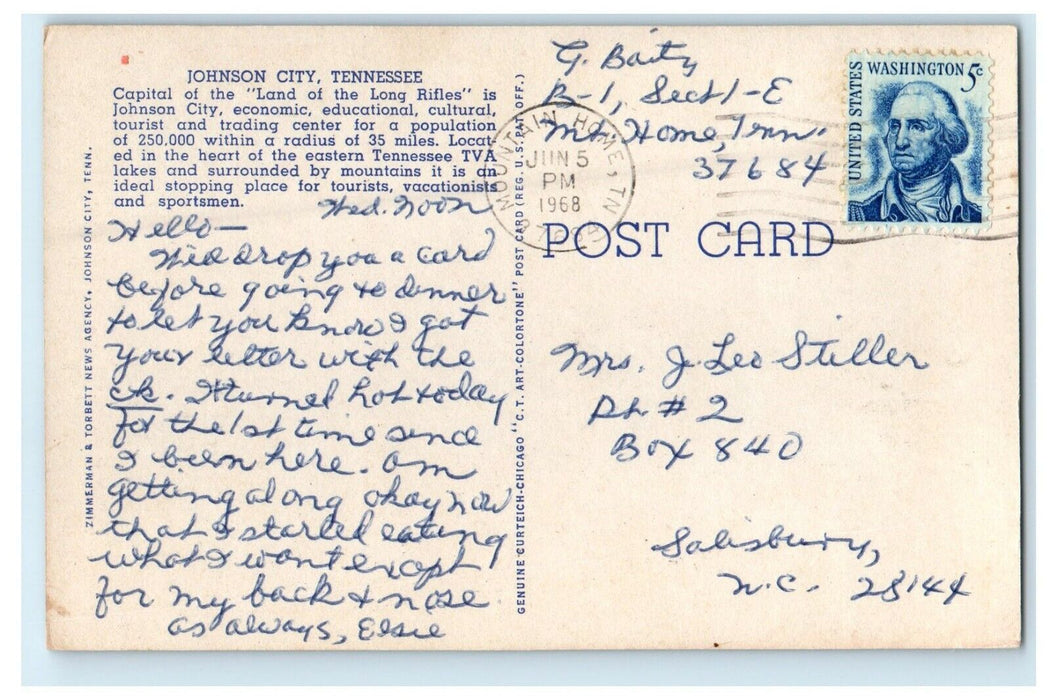 JOHNSON CITY, TENNESSEE
Capital of the "Land of the Long Rifles" is
Johnson City, economic, educational, cultural,
tourist and trading center for a population
of 250,000 within a radius of 35 miles. Locat-
ed in the heart of the eastern Tennessee TVA
lakes and surrounded by mountains it is an
ideal stopping place for tourists, vacationists
and sportsmen.
Wed. Noon
Hello—
Will drop you a card
before going to dinner
to let you know I got
your letter with the
ck. It turned hot today
for the 1st time since
I been here. Am
getting along okay now
that I started eating
what I want except
for my back & nose
as always, Elsie
ZIMMERMAN & TORBETT NEWS AGENCY, JOHNSON CITY, TENN.
GENUINE CURTEICH-CHICAGO "C.T. ART-COLORTONE" POST CARD (REG. U.S. PAT. OFF.)
G. Baity
B-1, Sect 1-E
Mt. Home, Tenn.
37684
MOUNTAIN HOME, TN
JUN 5
PM
1968
UNITED STATES
WASHINGTON 5c
POST CARD
Mrs. J. Leo Stiller
Rt. #2
Box 840
Salisbury,
N.C. 28144